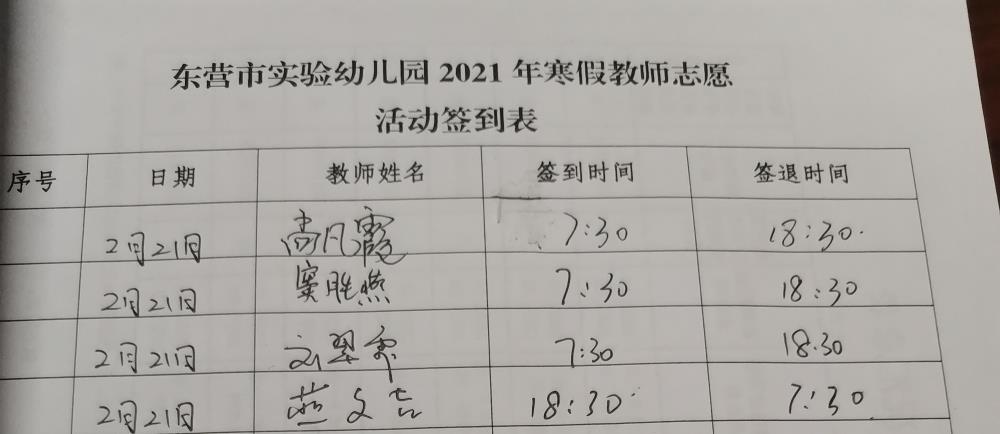 东营市实验幼儿园 2021 年寒假教师志愿
活动签到表
序号 日期 教师姓名 签到时间 签退时间
2月21日 尚凡霞 7:30 18:30.
2月21日 窦胜燕 7:30 18:30
2月21日 刘翠 7:30 18.30
2月21日 燕文吉 18:30 7:30